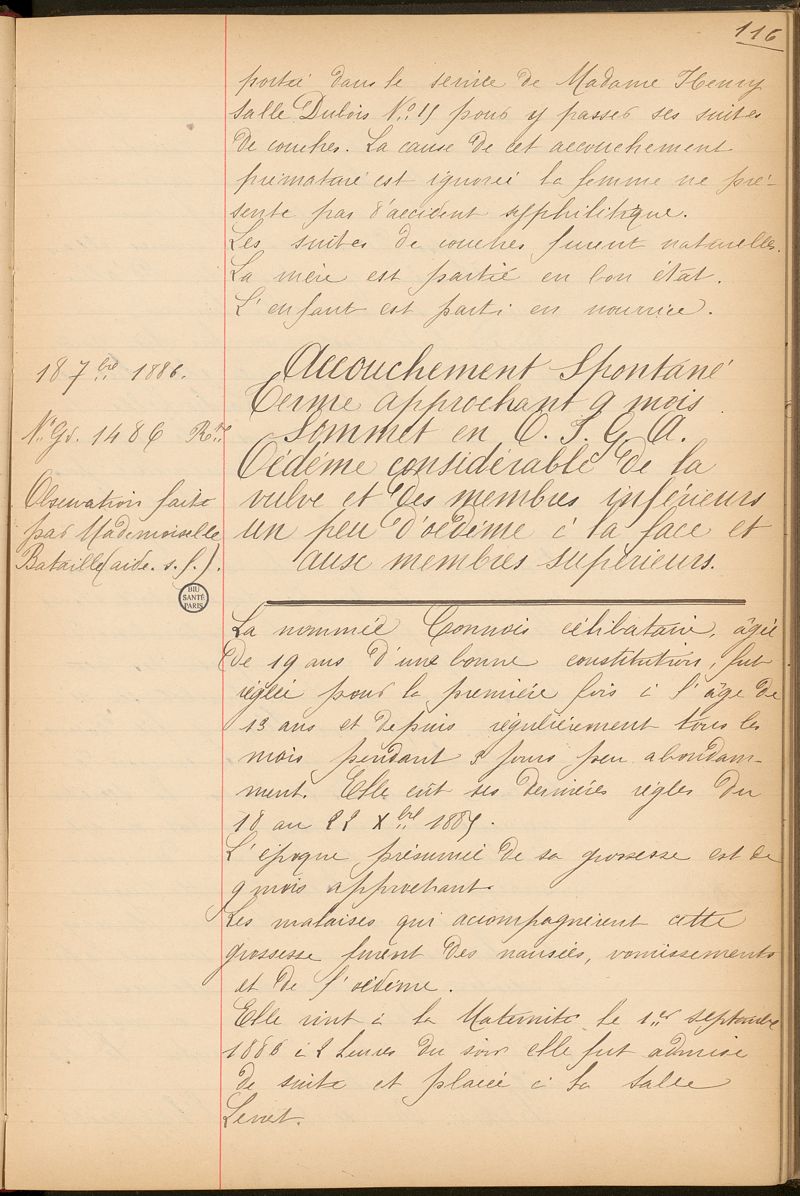 116
portée dans le service de Madame Henry
Salle Dubois N.o 15 pour y passer ses suites
de couches. La cause de cet accouchement
prématuré est ignorée la femme ne pré-
sente pas d'accident syphilitique.
Les suites de couches furent naturelles.
La mère est partie en bon état.
L'enfant est parti en nourrice.
18 7bre 1886.
N.o Gd. 1486 R.re
Observation faite
par Mademoiselle
Bataille (aide. s. f.).
BIU
SANTÉ
PARIS
Accouchement Spontané
Terme approchant 9 mois
Sommet en O. I. G. A.
Oédéme considérable de la
vulve et des membres inférieurs
un peu d'oedéme à la face et
aux membres supérieurs.
La nommée Connois célibataire, âgée
de 19 ans d'une bonne constitution, fut
réglée pour la première fois à l'âge de
13 ans et depuis régulièrement tous les
mois pendant 3 jours peu abondam-
ment. Elle eût ses dernières règles du
18 au 22 Xbre 1885.
L'époque présumée de sa grossesse est de
9 mois approchant.
Les malaises qui accompagnèrent cette
grossesse furent des nausées, vomissements
et de l'oedeme.
Elle vint à la Maternité le 1er septembre
1886 à 2 heures du soir elle fut admise
de suite et placée à la salle
Levret.